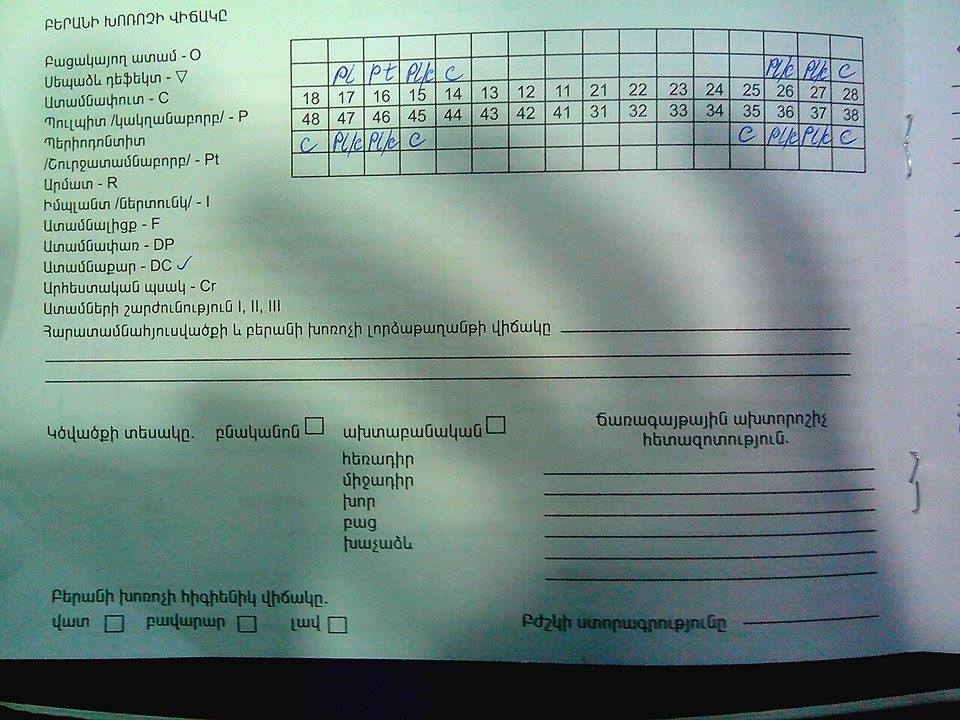 ԲԵՐԱՆԻ ԽՈՌՈՉԻ ՎԻՃԱԿԸ
Բացակայող ատամ - O
Սեպաձև դեֆեկտ - ▽
Ատամնափուտ - C
Պուլպիտ /կակղանաբորբ/ - P
Պերիոդոնտիտ
/Շուրջատամնաբորբ/ - Pt
Արմատ - R
Իմպլանտ /ներտունկ/ - I
Ատամնալիցք - F
Ատամնափառ - DP
Ատամնաքար - DC ✓
Արհեստական պսակ - Cr
Ատամների շարժունություն I, II, III
pt C C
18 17 16 15 14 13 12 11 21 22 23 24 25 26 27 28
48 47 46 45 44 43 42 41 31 32 33 34 35 36 37 38
C C C C
Հարատամնահյուսվածքի և բերանի խոռոչի լորձաթաղանթի վիճակը
Կծվածքի տեսակը. բնականոն ախտաբանական
հեռադիր
միջադիր
խոր
բաց
խաչաձև
Ճառագայթային ախտորոշիչ
հետազոտություն.
Բերանի խոռոչի հիգիենիկ վիճակը.
վատ բավարար լավ
Բժշկի ստորագրությունը